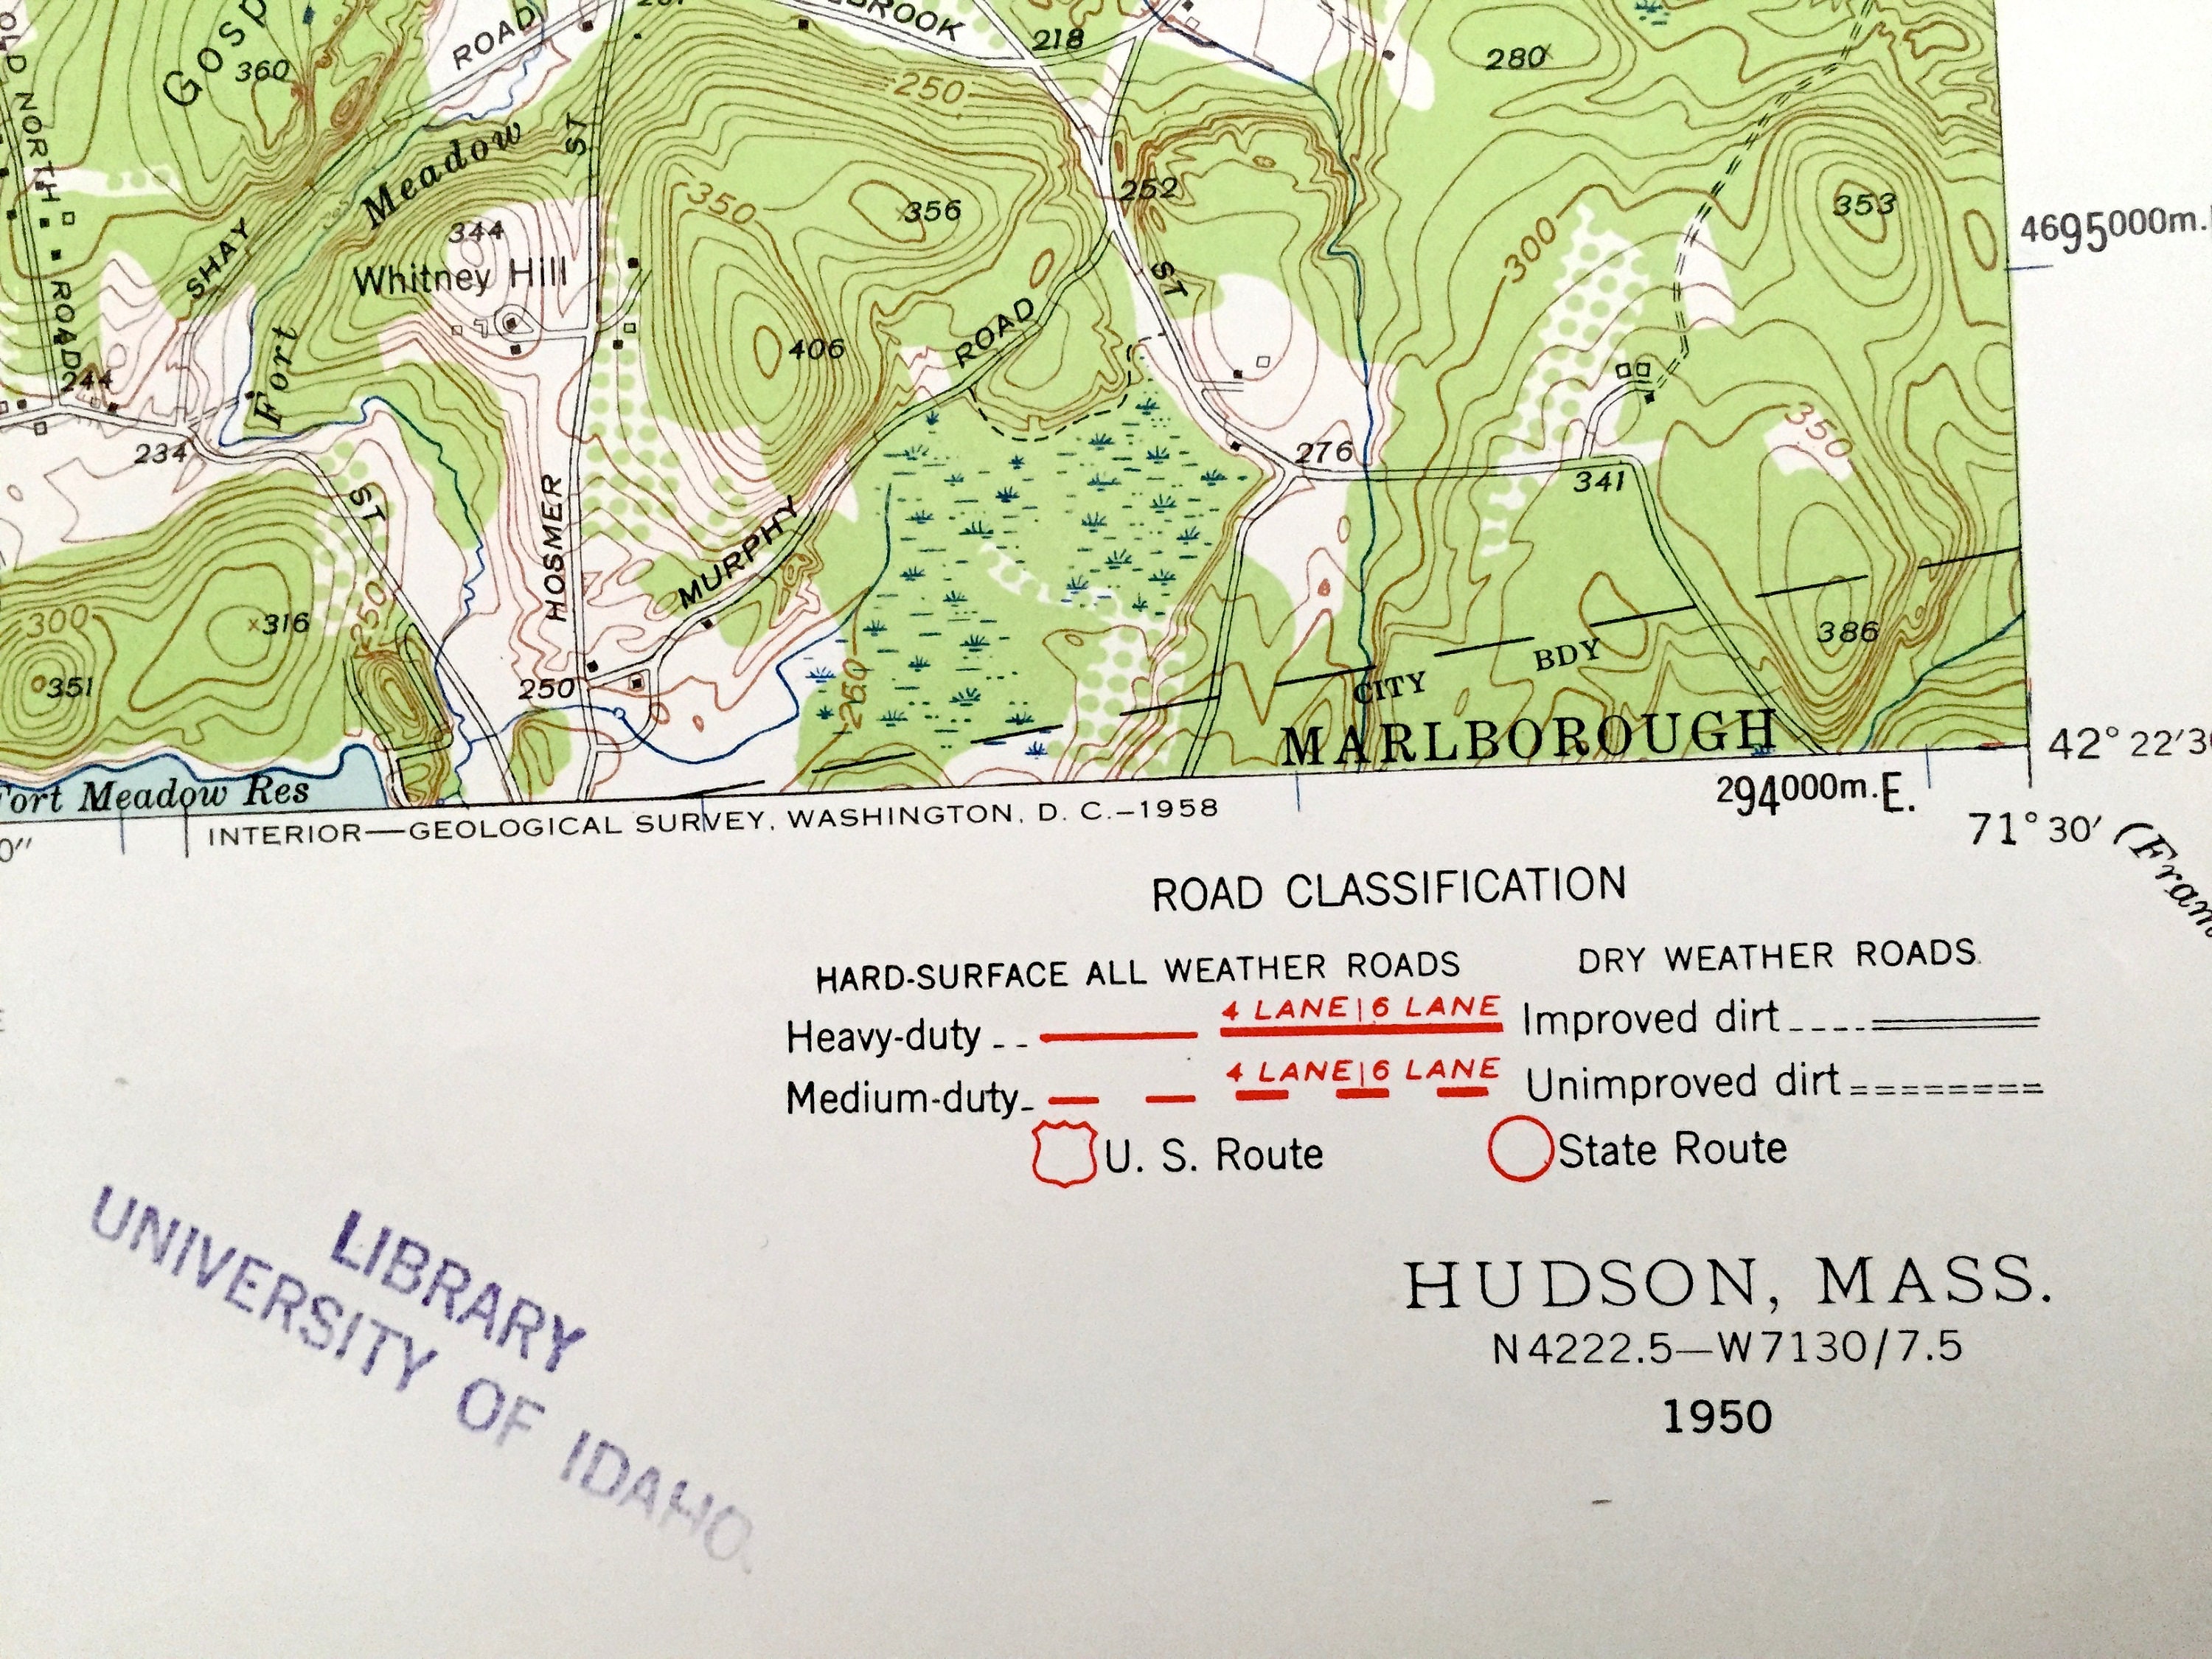 ROAD
BROOK
218
280
Gosp
360
250
OLD NORTH ROAD
Meadow
ST
350
356
252
353
4695000m.
344
SHAY
Whitney Hill
300
ST
ROAD
406
Fort
244
350
234
276
341
ST
HOSMER
MURPHY
300
316
250
386
351
250
250
CITY BDY
MARLBOROUGH
Fort Meadow Res
42° 22′3
294000m.E.
INTERIOR—GEOLOGICAL SURVEY, WASHINGTON, D. C.—1958
71° 30′
0″
(Fram
ROAD CLASSIFICATION
HARD-SURFACE ALL WEATHER ROADS DRY WEATHER ROADS
4 LANE|6 LANE
Heavy-duty Improved dirt
4 LANE|6 LANE
Medium-duty Unimproved dirt
U. S. Route State Route
LIBRARY
UNIVERSITY OF IDAHO.
HUDSON, MASS.
N4222.5—W7130/7.5
1950